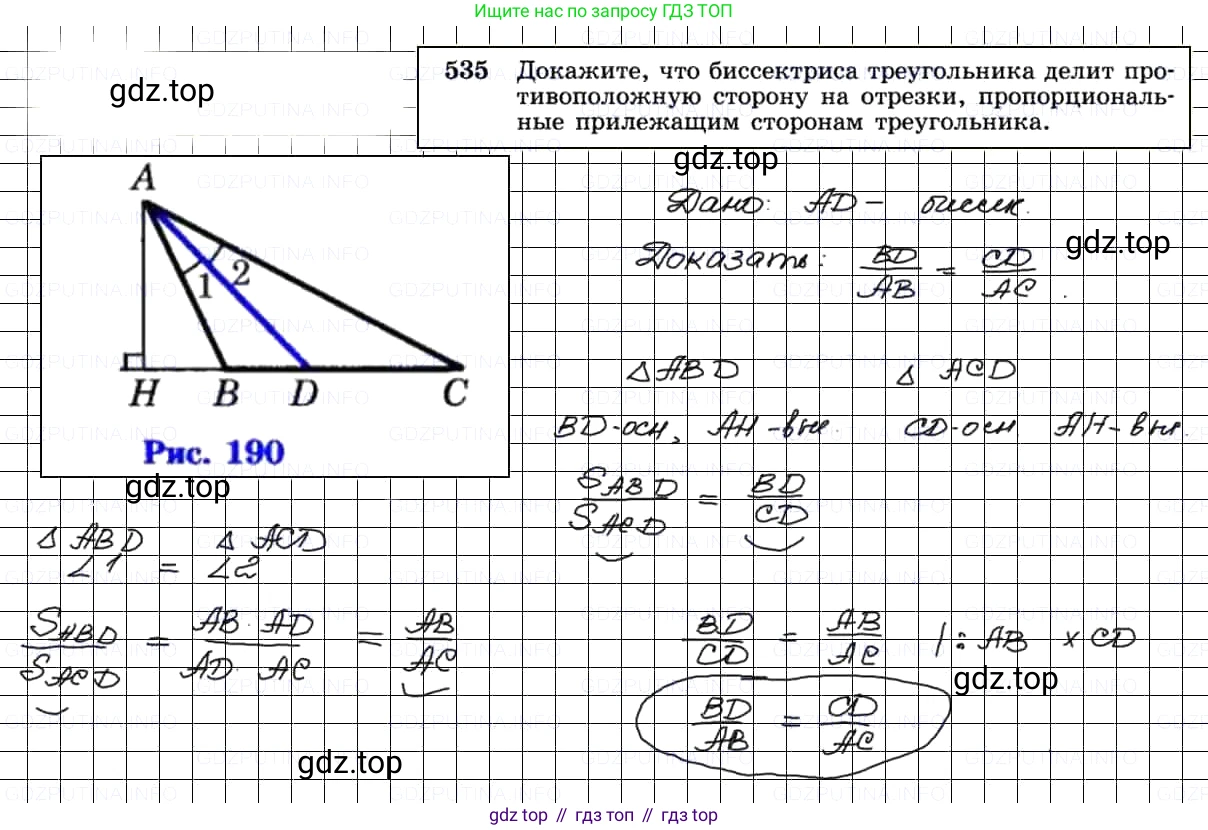 Ищите нас по запросу ГДЗ ТОП
535 Докажите, что биссектриса треугольника делит про-
тивоположную сторону на отрезки, пропорциональ-
ные прилежащим сторонам треугольника.
gdz.top
gdz.top
Дано: AD – биссек.
Доказать: BD/AB = CD/AC.
gdz.top
A
1 2
H B D C
Рис. 190
gdz.top
△ABD △ACD
BD-осн, AH-выс. CD-осн AH-выс.
S ABD / S ACD = BD/CD
△ABD △ACD
∠1 = ∠2
S ABD / S ACD = AB · AD / AD · AC = AB/AC
BD/CD = AB/AC | : AB × CD
gdz.top
BD/AB = CD/AC
gdz.top
gdz топ // гдз топ // gdz top